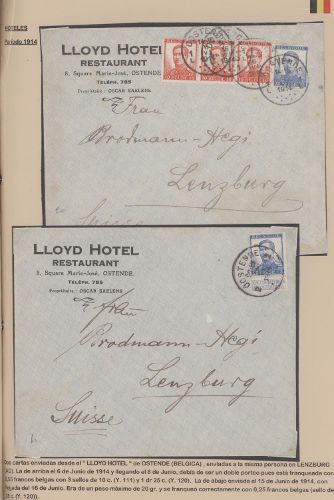 HOTELES
Período 1914
LLOYD HOTEL
RESTAURANT
8, Square Marie-José, OSTENDE
TÉLÉPH. 785
Propriétaire : OSCAR SAELENS
Frau
Brodmann-Hegi
Lenzburg
Suisse
LLOYD HOTEL
RESTAURANT
8, Square Marie-José, OSTENDE
TÉLÉPH. 785
Propriétaire : OSCAR SAELENS
OOSTENDE
Frau
Brodmann-Hegi
Lenzburg
Suisse
Dos cartas enviadas desde el " LLOYD HOTEL " de OSTENDE (BELGICA) , enviadas a la misma persona en LENZBURG
La de arriba el 6 de Junio de 1914 y llegando el 8 de Junio, debía de ser un doble porteo pues está franqueada con
francos belgas con 3 sellos de 10 c. (Y. 111) y 1 de 25 c. (Y. 120). La de abajo enviada el 15 de Junio de 1914, con
llegada del 16 de Junio. Era de un peso máximo de 20 gr. y se franqueo correctamente con 0,25 francos belgas (sello
de 25 c. (Y. 120).